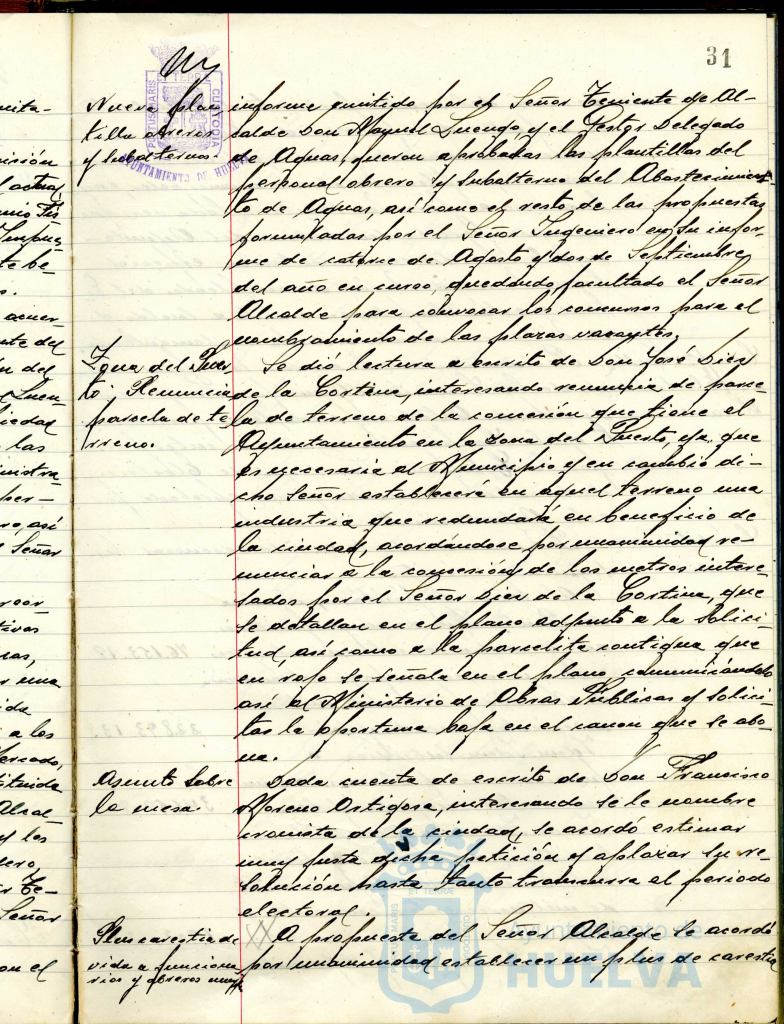 31
Nueva plan
tilla obreros
y subalternos.
PORTUS MARIS
ET TERRE
CUSTODIA
AYUNTAMIENTO DE HUELVA
informe emitido por el Señor Teniente de Al-
calde Don Manuel Luengo y el Gestor Delegado
de Aguas, fueron aprobadas las plantillas del
personal obrero y subalterno del Abastecimien-
to de Aguas, así como el resto de las propuestas
formuladas por el Señor Ingeniero en su infor-
me de catorce de Agosto y dos de Septiembre
del año en curso, quedando facultado el Señor
Alcalde para convocar los concursos para el
nombramiento de las plazas vacantes.
Zona del Puer
to: Renuncia
parcela de te
rreno.
Se dió lectura a escrito de Don José Diez
de la Cortina, interesando renuncia de parce-
la de terreno de la concesión que tiene el
Ayuntamiento en la zona del Puerto, ya que
es necesaria al Municipio y en cambio di-
cho Señor establecerá en aquel terreno una
industria que redundará en beneficio de
la ciudad, acordándose por unanimidad re-
nunciar a la concesión de los metros intere-
sados por el Señor Diez de la Cortina, que
se detallan en el plano adjunto a la solici-
tud, así como a la parcelita contigua que
en rojo se señala en el plano, comunicándolo
así al Ministerio de Obras Públicas y solici-
tar la oportuna baja en el canon que se abo-
na.
Asunto sobre
la mesa.
Dada cuenta de escrito de Don Francisco
Moreno Ortigosa, interesando se le nombre
cronista de la ciudad, se acordó estimar
muy justa dicha petición y aplazar su re-
solución hasta tanto transcurra el periodo
electoral.
Plus carestia de
vida a funciona
rios y obreros
A propuesta del Señor Alcalde se acordó
por unanimidad establecer un plus de carestía
Ayuntamiento de
HUELVA